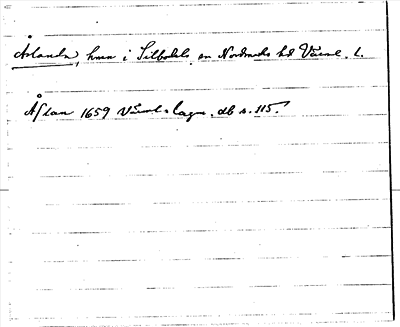 Årlanda, hmn i Silbodals sn Nordmarks hd Värml. l.
Åflan 1659 Värml. lagm. db s. 115.